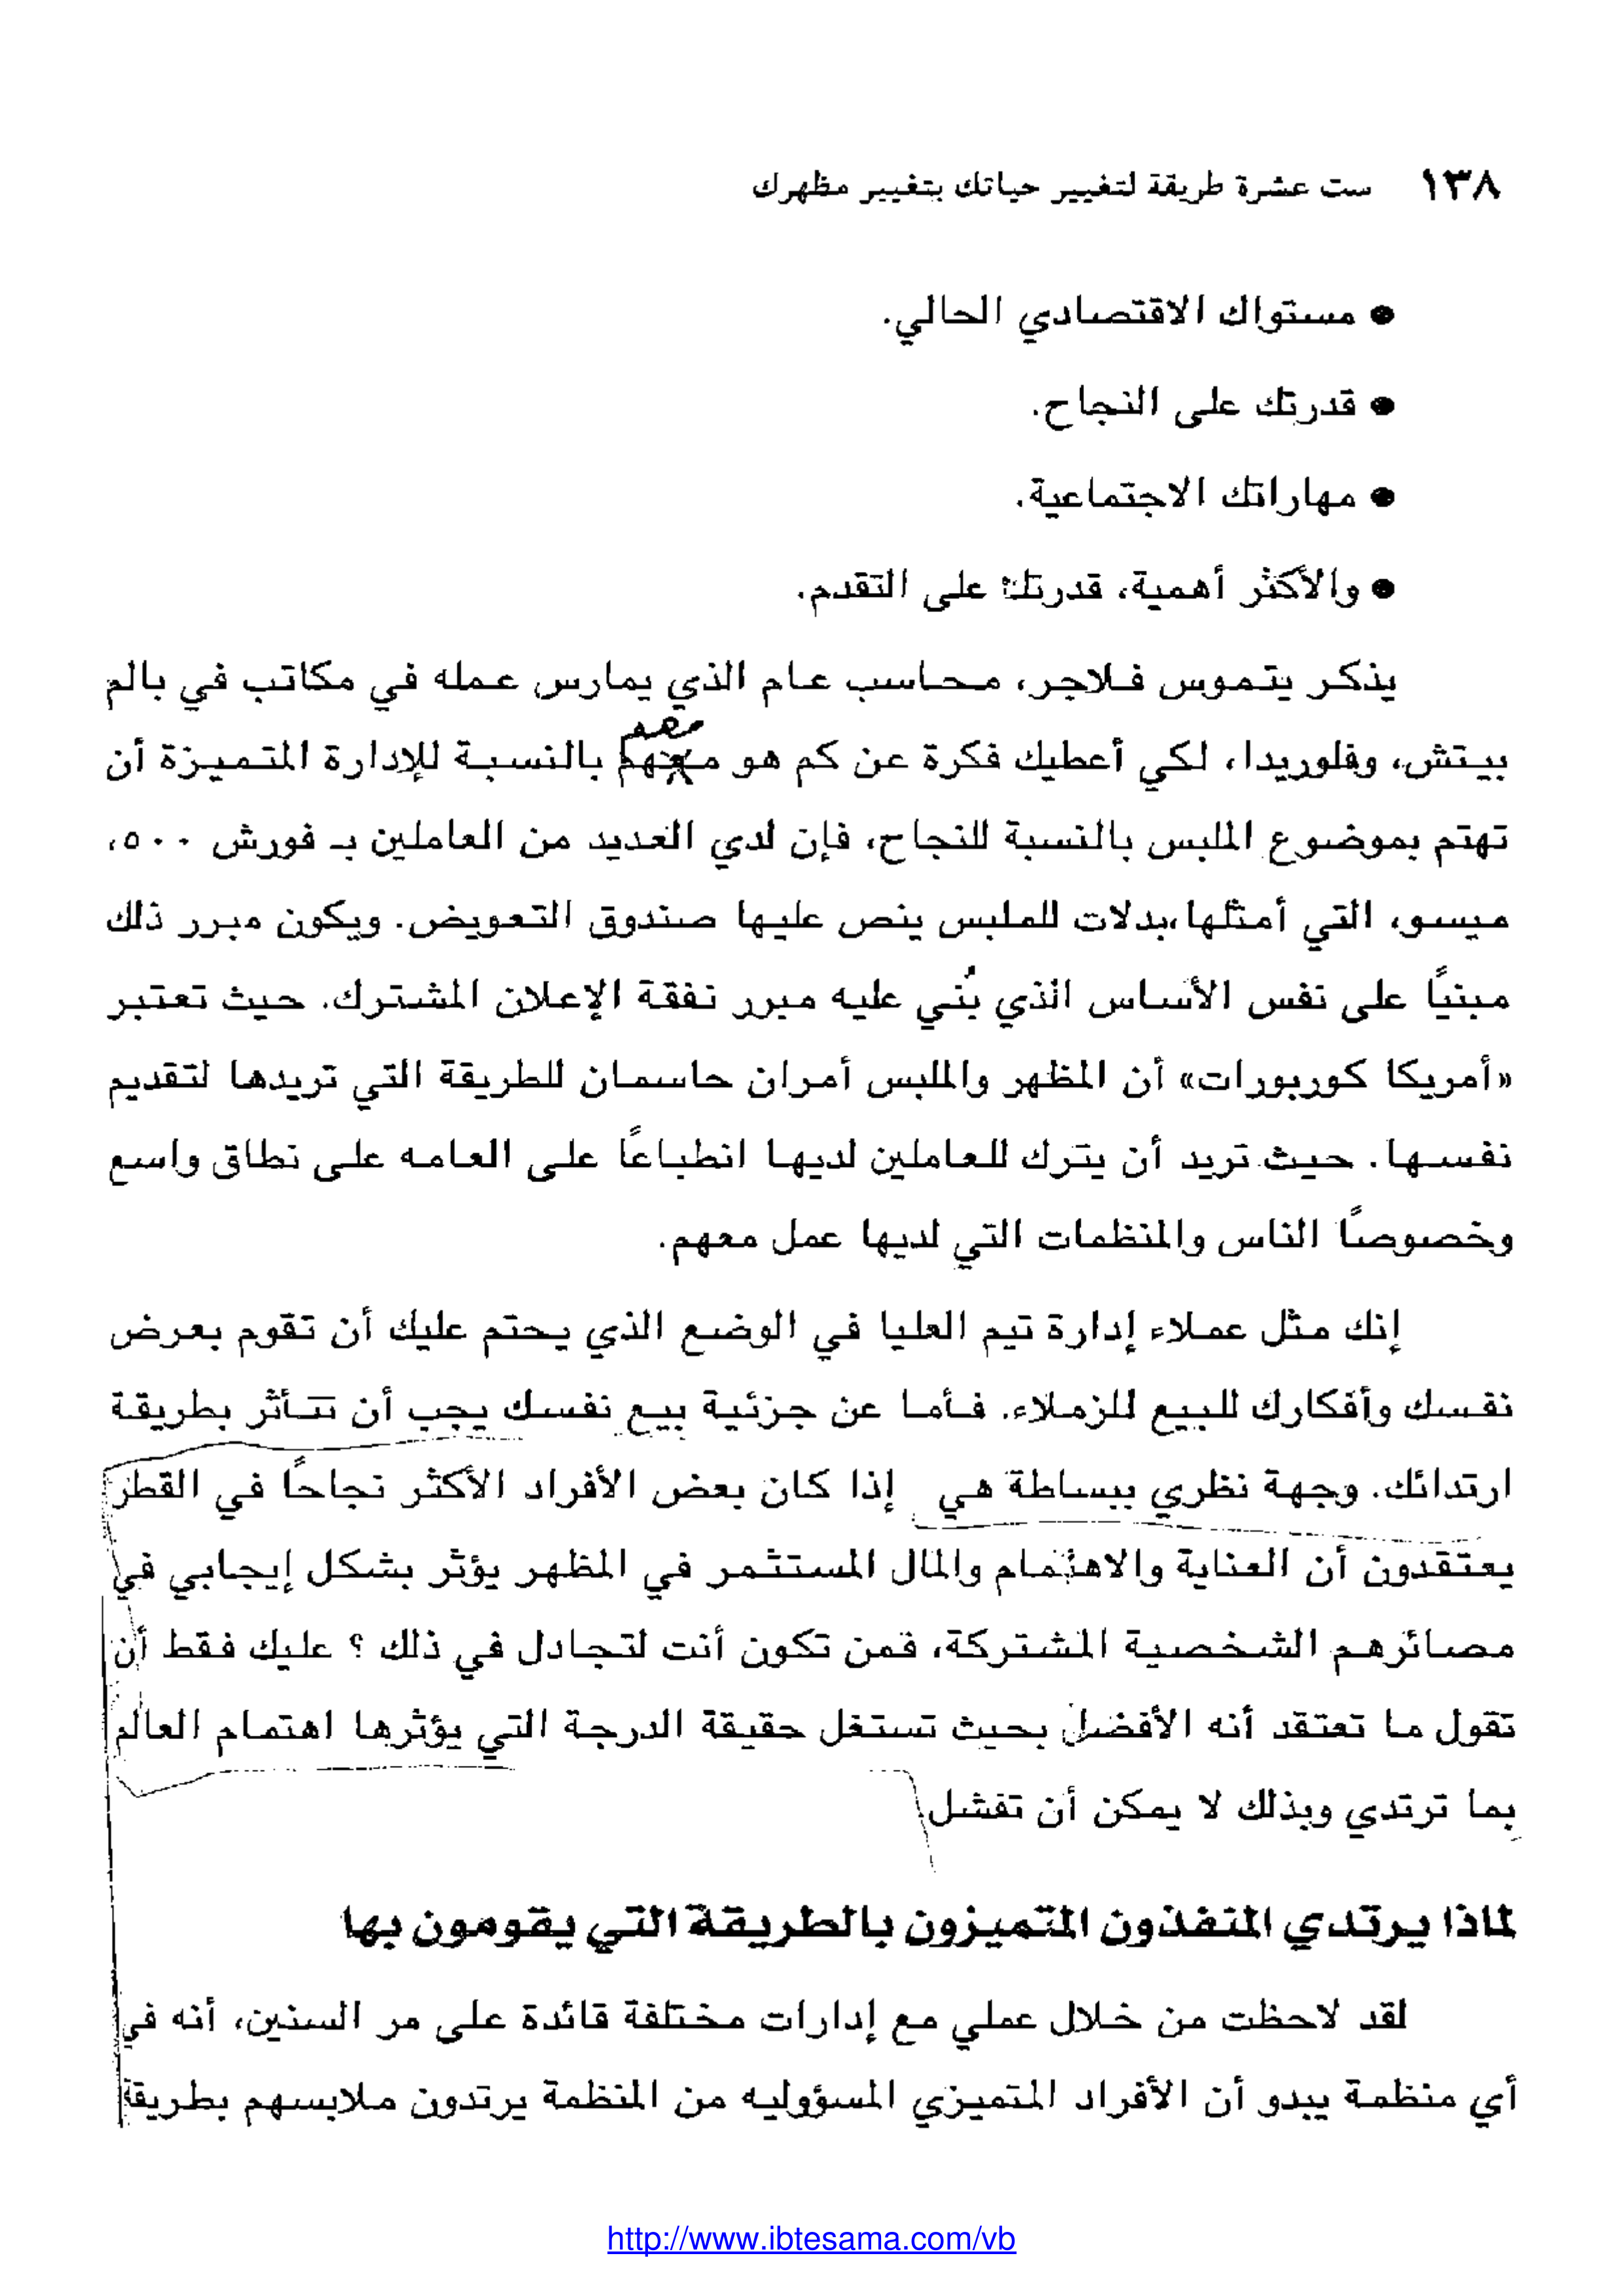 ١٣٨ ست عشرة طريقة لتغيير حياتك بتغيير مظهرك
● مستواك الاقتصادي الحالي.
● قدرتك على النجاح.
● مهاراتك الاجتماعية.
● والأكثر أهمية، قدرتك على التقدم.
يذكر يتموس فلاجر، محاسب عام الذي يمارس عمله في مكاتب في بالم
مهم
بيتش، وفلوريدا، لكي أعطيك فكرة عن كم هو معهم بالنسبة للإدارة المتميزة أن
تهتم بموضوع الملبس بالنسبة للنجاح، فإن لدي العديد من العاملين بـ فورش ٥٠٠،
ميسو، التي أمثلها،بدلات للملبس ينص عليها صندوق التعويض. ويكون مبرر ذلك
مبنياً على نفس الأساس الذي بُني عليه مبرر نفقة الإعلان المشترك. حيث تعتبر
«أمريكا كوربورات» أن المظهر والملبس أمران حاسمان للطريقة التي تريدها لتقديم
نفسها. حيث تريد أن يترك للعاملين لديها انطباعاً على العامه على نطاق واسع
وخصوصاً الناس والمنظمات التي لديها عمل معهم.
إنك مثل عملاء إدارة تيم العليا في الوضع الذي يحتم عليك أن تقوم بعرض
نفسك وأفكارك للبيع للزملاء. فأما عن جزئية بيع نفسك يجب أن تتأثر بطريقة
ارتدائك. وجهة نظري ببساطة هي إذا كان بعض الأفراد الأكثر نجاحاً في القطر
يعتقدون أن العناية والاهتمام والمال المستثمر في المظهر يؤثر بشكل إيجابي في
مصائرهم الشخصية المشتركة، فمن تكون أنت لتجادل في ذلك ؟ عليك فقط أن
تقول ما تعتقد أنه الأفضل بحيث تستغل حقيقة الدرجة التي يؤثرها اهتمام العالم
بما ترتدي وبذلك لا يمكن أن تفشل
لماذا يرتدي المنفذون المتميزون بالطريقة التي يقومون بها
لقد لاحظت من خلال عملي مع إدارات مختلفة قائدة على مر السنين، أنه في
أي منظمة يبدو أن الأفراد المتميزي المسؤوليه من المنظمة يرتدون ملابسهم بطريقة
http://www.ibtesama.com/vb